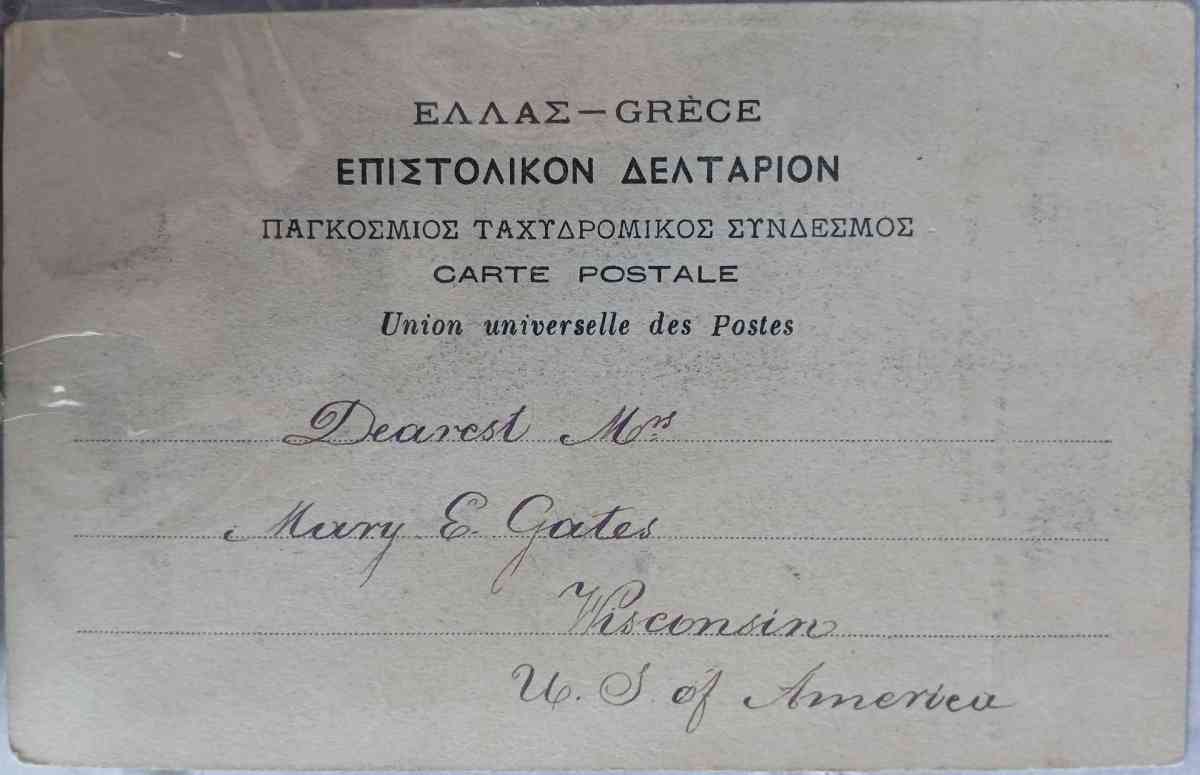 ΕΛΛΑΣ – GRÈCE
ΕΠΙΣΤΟΛΙΚΟΝ ΔΕΛΤΑΡΙΟΝ
ΠΑΓΚΟΣΜΙΟΣ ΤΑΧΥΔΡΟΜΙΚΟΣ ΣΥΝΔΕΣΜΟΣ
CARTE POSTALE
Union universelle des Postes
Dearest Mrs
Mary E. Gates
Wisconsin
U. S. of America